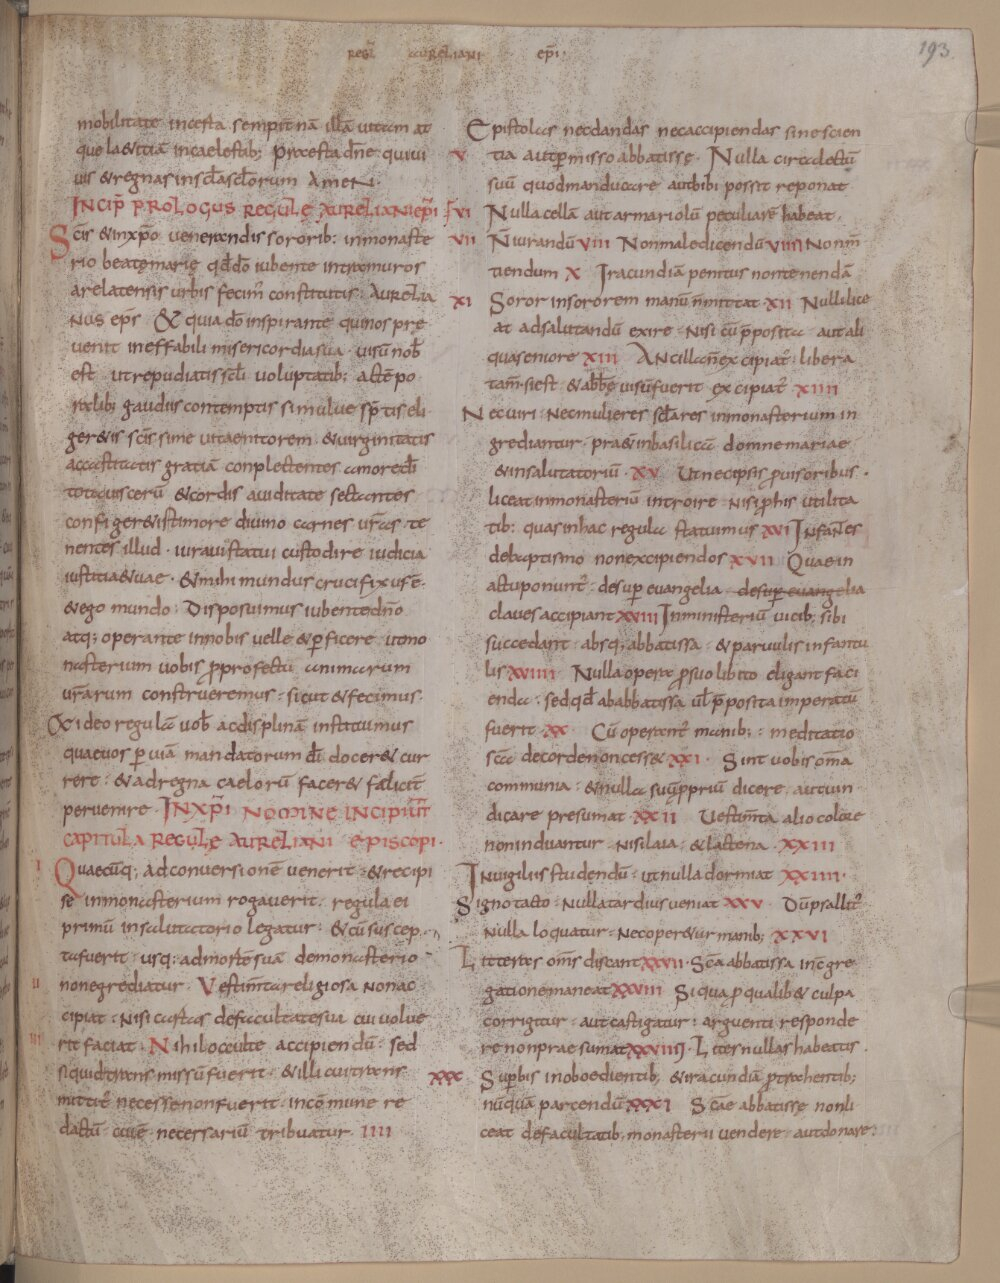 REGL AURELIANI EPI·
193
mobilitate incesta. sempit̄nā illā vitam at
que lætitiā incaelestib; Praestad̄ne quivi
vis & regnas inscl̄ascl̄orum AmeN·
INCIP̄ PROLOGUS REGULĘ AURELIANI EP̄I
Sc̄is & inxp̄o venerandis sororib: inmonaste
rio beatęmarię qd̄d̄o iubente intramuros
arelatensis urbis fecim̄ constitutis· Aurelia
Nus ep̄s & quia d̄o inspirante quinos pre
venit ineffabili misericordiasua· visū nob̄
est ut repudiatis scl̄i voluptatib; ac tēpo
ralib; gaudiis contemptis simulque sp̄tis eli
ger&is sc̄is sine vitaenitorem· & virginitatis
ac castitatis gratiā conplectentes amored̄i
totavisceru· & cordis aviditate sectantes
configer&istimore divino carnes vr̄as· te
nentes illud· iuravi statui custodire iudicia
iustitia&uae· & mihi mundus crucifixus ē·
& ego mundo· Disposuimus iubentedn̄o
atq; operante innobis velle & p̱ficere ut mo
nasterium vobis pprofectu animarum
vr̄arum construeremus· sicut & fecimus·
& ideo regulā vob̄ ac displinā instituimus
quaevos p viā mandatorum d̄i docer& cur
rere· & adregna caelorū facer& felicit̄
pervenire· INXP̄I NOMINE INCIPIUNT̄
CAPITULA REGULĘ AURELIANI EPISCOPI·
I Quaecūq; adconversionē venerit· & recipi
se inmonasterium rogaverit· regula ei
primū insalutatorio legatur· & cū suscep
tafuerit· usq; admortē suā demonasterio
II nonegrediatur· Vestim̄ta religiosa nonac
cipiat· Nisi castas defacultatesua cui volue
III rit faciat· Nihil occulte accipiendū· sed
siquidtrans missū fuerit· & illi cui trans
mittit̄ necesse nonfuerit· incōmune re
dactū· cui ē necessariū tribuatur· IIII
Epistolas necdandas necaccipiendas sinescien
V tia aut p̱misso abbatissę· Nulla circa lectū
suū quodmanducare aut bibi possit reponat
VI Nulla cellā aut armariolū peculiarē habeat·
VII N̄iurandū VIII Nonmaledicendū VIIII Nonm̄
tiendum X Iracundiā penitus nontenendā
XI Soror insororem manū n̄mittat XII Nulli lice
at adsalutandū exire· Nisi cū p̄posita aut ali
quaseniore XIII Ancillan̄excipiat̄· libera
tam̄ siest & abb̄e visūfuerit excipiat̄ XIIII
Nec viri· Nec mulieres sclares inmonasterium in
grediantur· præt̄ inbasilica domnemariae
& insalutatoriū· XV Ut necipsis p̱visoribus·
liceat inmonasteriū introire· Nisi phis utilita
tib: quas inhac regula statuimus XVI Infantes
debaptismo nonexcipiendos XVII Quaein
actu ponunt̄· desup evangelia desup evangelia
claves accipiant XVIII Inministeriū vicib; sibi
succedant· absq; abbatissa· & parvulis infantu
lis XVIIII Nulla opera psuo libito eligant faci
enda· sed qd̄ ababbatissa ul̄ p̄posita imperatū
fuerit· XX Cū operant̄ manib;· meditatio
sc̄a decorde noncess& XXI· Sint vobis om̄a
communia· & nulla suū pprium dicere· aut vin
dicare presumat· XXII Vestim̄ta alio colore
noninduantur· Nisi laia· & lactena· XXIII
Invigiliis studendū· ut nulla dormiat XXIIII·
Signo tacto· Nulla tardius veniat XXV· Dū psallit̄
Nulla loquatur· Nec oper&ur manib; XXVI
Litteras om̄s discant XXVII· Sc̄a abbatissa incgre
gationemaneat XXVIII Si qua p qualib& culpa
corrigitur· aut castigatur· arguenti responde
re nonpraesumat XXVIIII· Lites nullas habeatis·
XXX Supbis inoboedientib; & iracundiā ptrahentib;
nūquā parcendū XXXI Sc̄ae abbatissę non li
ceat defacultatib; monasterii vendere· aut donare